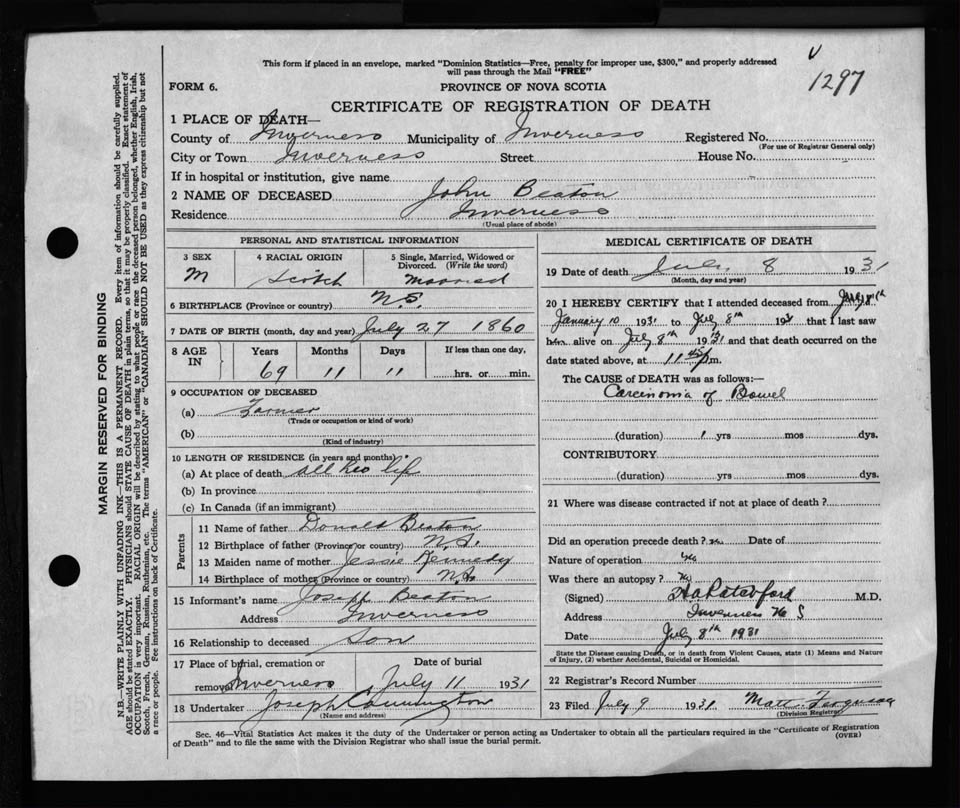 This form if placed in an envelope, marked "Dominion Statistics—Free, penalty for improper use, $300," and properly addressed
will pass through the Mail "FREE"
V
1297
FORM 6.
PROVINCE OF NOVA SCOTIA
CERTIFICATE OF REGISTRATION OF DEATH
1 PLACE OF DEATH—
County of Inverness Municipality of Inverness Registered No.
(For use of Registrar General only)
City or Town Inverness Street House No.
If in hospital or institution, give name
2 NAME OF DECEASED John Beaton
Residence Inverness
(Usual place of abode)
PERSONAL AND STATISTICAL INFORMATION
3 SEX 4 RACIAL ORIGIN 5 Single, Married, Widowed or
Divorced. (Write the word)
M Scotch Married
6 BIRTHPLACE (Province or country) N.S.
7 DATE OF BIRTH (month, day and year) July 27 1860
8 AGE IN Years Months Days If less than one day,
69 11 11 hrs. or min.
9 OCCUPATION OF DECEASED
(a) Farmer
(Trade or occupation or kind of work)
(b)
(Kind of industry)
10 LENGTH OF RESIDENCE (in years and months)
(a) At place of death all his life
(b) In province
(c) In Canada (if an immigrant)
Parents
11 Name of father Donald Beaton
12 Birthplace of father (Province or country) N.S.
13 Maiden name of mother Jessie Kennedy
14 Birthplace of mother (Province or country) N.S.
15 Informant's name Joseph Beaton
Address Inverness
16 Relationship to deceased Son
17 Place of burial, cremation or Date of burial
removal Inverness July 11 1931
18 Undertaker Joseph
(Name and address)
MEDICAL CERTIFICATE OF DEATH
19 Date of death July 8 1931
(Month, day and year)
20 I HEREBY CERTIFY that I attended deceased from
January 10 1931 to July 8th 1931 that I last saw
him alive on July 8th 1931 and that death occurred on the
date stated above, at 11 45 p m.
The CAUSE of DEATH was as follows:—
Carcinoma of Bowel
(duration) 1 yrs mos dys.
CONTRIBUTORY
(duration) yrs mos dys.
21 Where was disease contracted if not at place of death?
Did an operation precede death? Date of
Nature of operation
Was there an autopsy? No
(Signed) M.D.
Address Inverness N S
Date July 8th 1931
State the Disease causing Death, or in death from Violent Causes, state (1) Means and Nature
of Injury, (2) whether Accidental, Suicidal or Homicidal.
22 Registrar's Record Number
23 Filed July 9 1931
(Division Registrar)
Sec. 46—Vital Statistics Act makes it the duty of the Undertaker or person acting as Undertaker to obtain all the particulars required in the "Certificate of Registration
of Death" and to file the same with the Division Registrar who shall issue the burial permit.
(OVER)
MARGIN RESERVED FOR BINDING
N.B.—WRITE PLAINLY WITH UNFADING INK—THIS IS A PERMANENT RECORD. Every item of information should be carefully supplied.
AGE should be stated EXACTLY. PHYSICIANS should STATE CAUSE OF DEATH in plain terms, so that it may be properly classified. Exact statement of
OCCUPATION is very important. RACIAL ORIGIN will be described by stating to what people or race the deceased person belonged, whether English, Irish,
Scotch, French, German, Russian, Ruthenian, etc. The terms "AMERICAN" or "CANADIAN" SHOULD NOT BE USED as they express citizenship but not
a race or people. See instructions on back of Certificate.